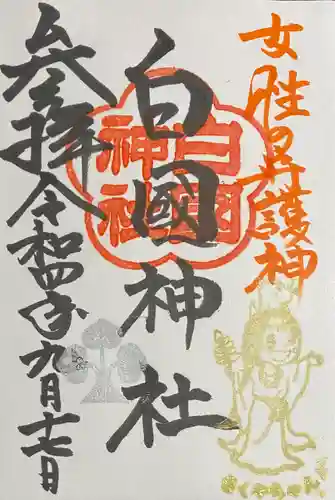 女性の守護神
白國神社
白國神社
参拝 令和四年九月十七日